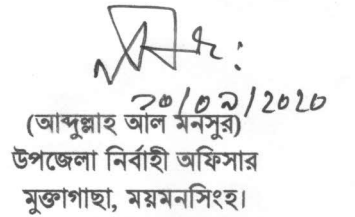 ২০/০৯/2020
(আব্দুল্লাহ আল মনসুর)
উপজেলা নির্বাহী অফিসার
মুক্তাগাছা, ময়মনসিংহ।